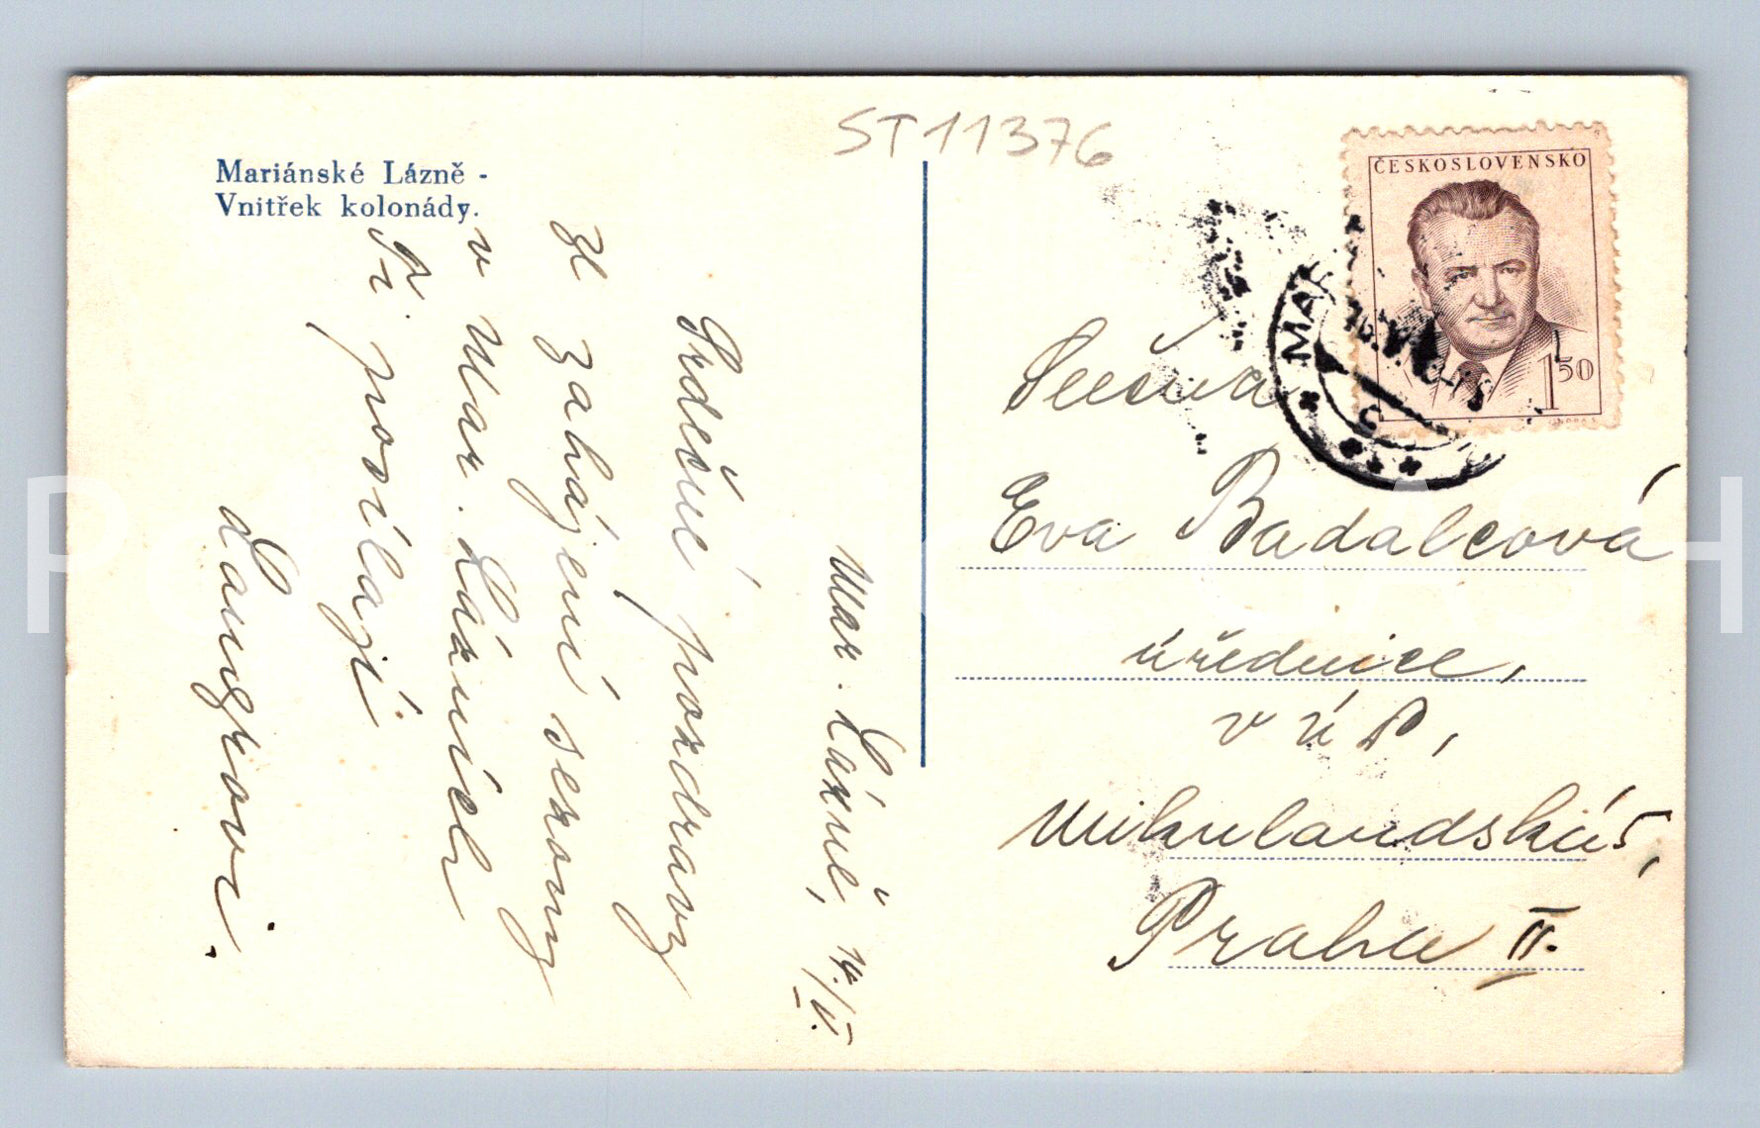 ST11376
Mariánské Lázně -
Vnitřek kolonády.
ČESKOSLOVENSKO
1 50
MAR
Mar. Lázně, 14./V.
Srdečné pozdravy
ze zahájení sezony
v Mar. Lázních
Ti posílají
Langrovi.
Slečna
Eva Badalcová
úřednice,
v ÚP,
Mikulandská 5,
Praha II.